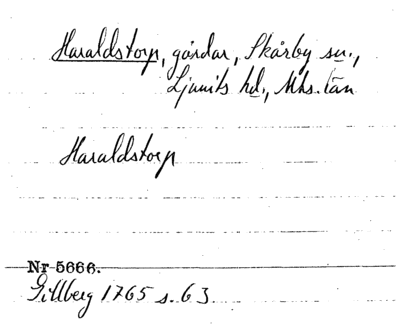 Haraldstorp, gårdar, Skårby sn.,
Ljunits hd., Mhs. län
Haraldstorp
Nr 5666.
Gillberg 1765 s. 63